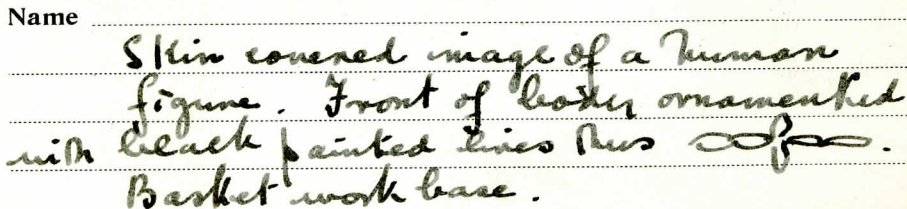 Name
Skin covered image of a human
figure. Front of body ornamented
with black painted lines thus
Basket work base.